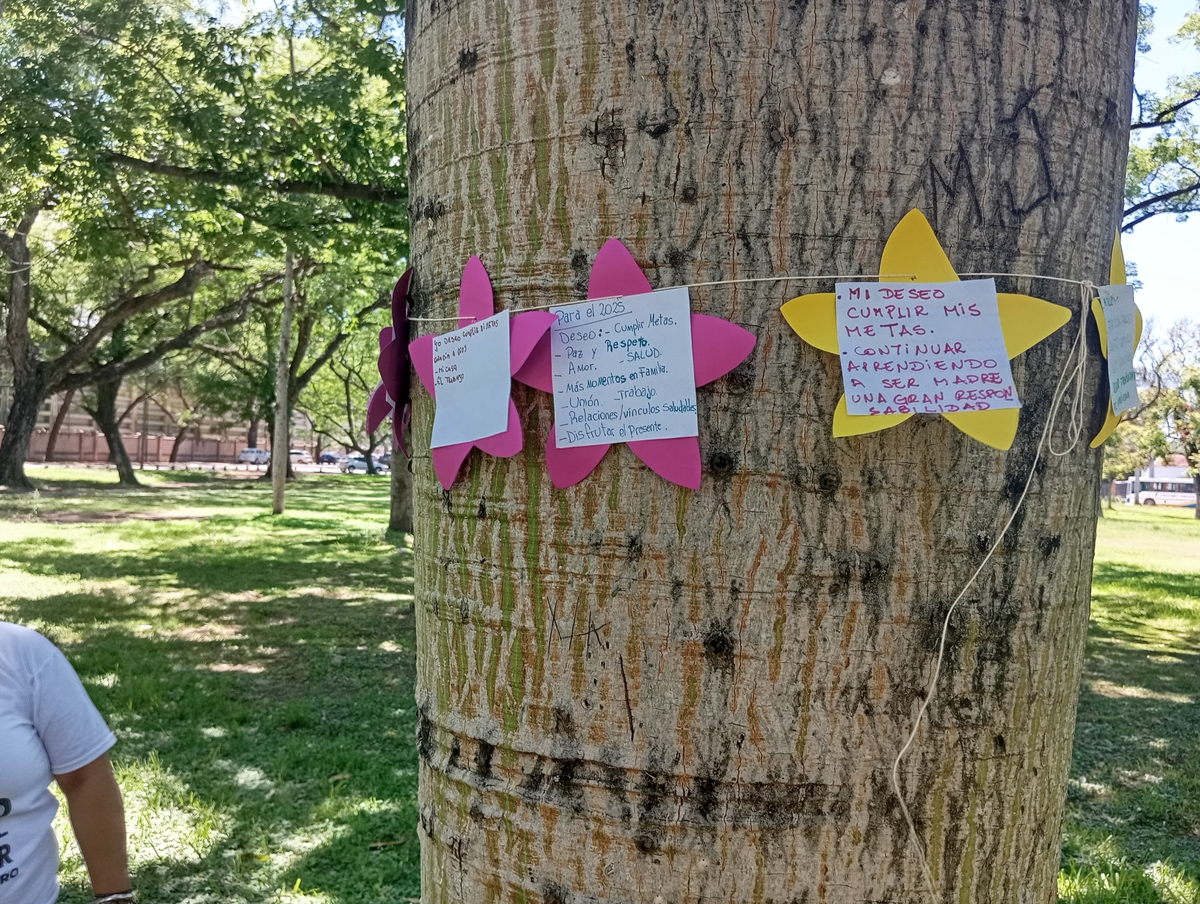 YO DESEO CUMPLIR MI METAS
- MI CASA
- EL TRABAJO
Para el 2025
Deseo :- Cumplir Metas.
- Paz y Respeto.
Amor. - SALUD.
- Más Momentos en Familia.
- Unión. - Trabajo.
- Relaciones/vínculos Saludables
- Disfrutar el Presente.
. MI DESEO
CUMPLIR MIS
METAS.
. CONTINUAR
APRENDIENDO
A SER MADRE
UNA GRAN RESPON
SABILIDAD
MJ
LA